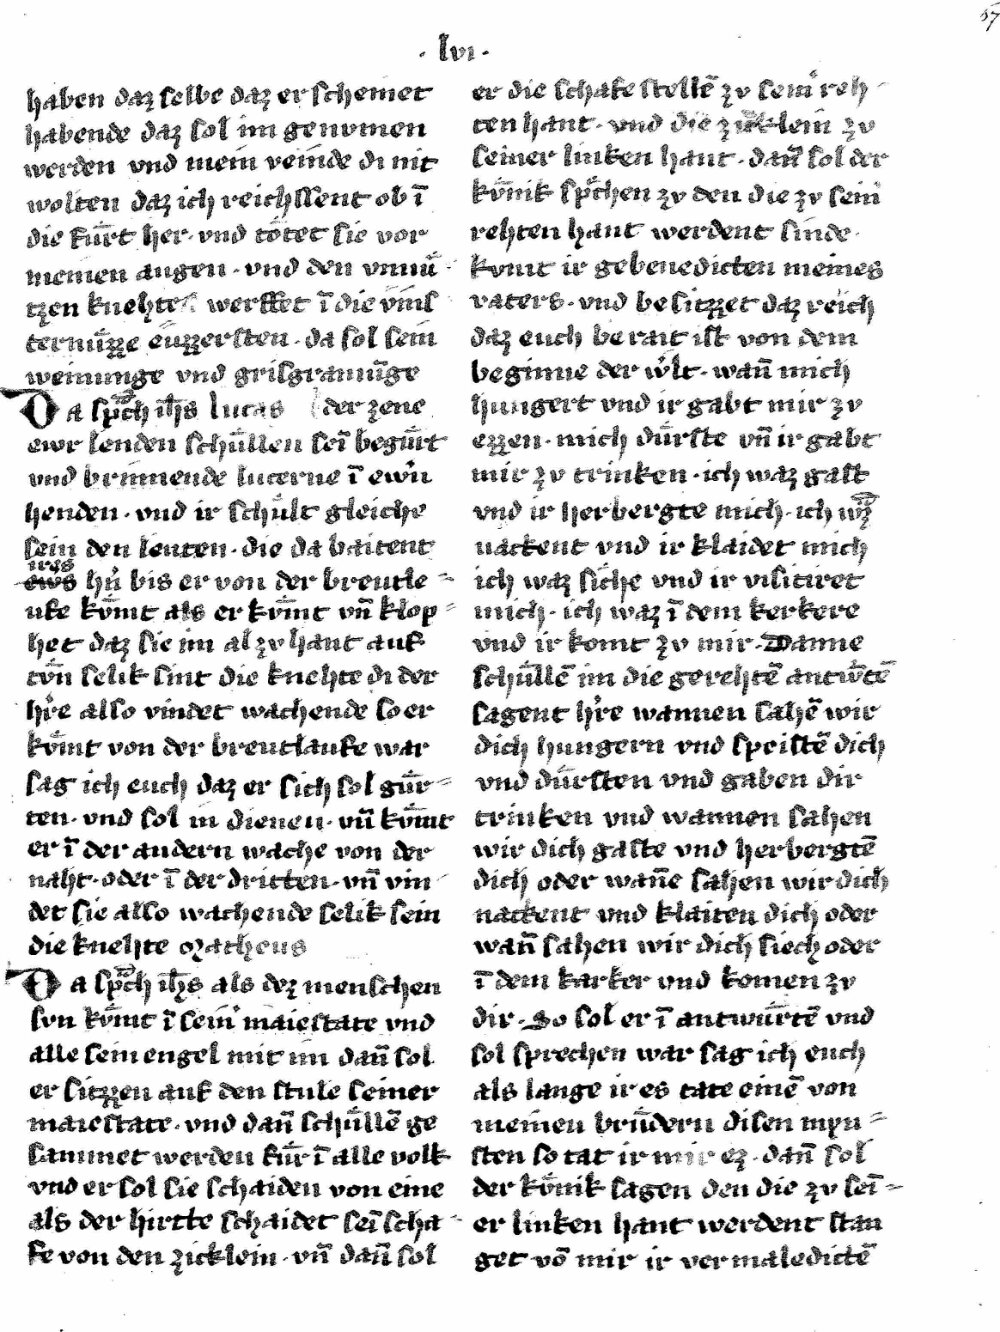 57
· lvi ·
haben daz selbe daz er schemet
habende daz sol im genvmen
werden vnd mein veinde di nit
wolten daz ich reichssent ob ī
die fuͤrt her · vnd toͤtet sie vor
meinen augen · vnd den vnnuͤ-
tzen knehte werffet ī die vins
ternuͤzze euzzersten · da sol sein
weinunge vnd grisgramūge
Da spͣch ih̄s lucas der zene
ewr lenden schuͤllen seī beguͤrt
vnd brinnende lucerne ī ewͬn
henden · vnd ir schuͤlt gleiche
sein den leuten · die da baitent
irs
ews hͬn bis er von der breutle-
ufe koͤmt als er koͤmt vn̄ klop-
het daz sie im alzv hant auf
tvͦn selik sint die knehte di der
hͬre also vindet wachende so er
koͤmt von der breutlaufe war
sag ich euch daz er sich sol guͤr-
ten · vnd sol in dienen · vn̄ koͤmt
er ī der andern wache von der
naht · oder ī der dritten · vn̄ vin-
det sie also wachende selik sein
die knehte Matheus
Da spͣch ih̄s als dez menschen
svn koͤmt ī seinͬ maiestate vnd
alle sein engel mit im dan̄ sol
er sitzzen auf den stule seiner
maiestate · vnd dan̄ schuͤllē ge
sammet werden fuͤr ī alle volk
vnd er sol sie schaiden von eine
als der hirtte schaidet seī scha-
fe von den zicklein · vn̄ dan̄ sol
er die schafe stellē zv seinͬ reh-
ten hant · vnd die zicklein zv
seiner linken hant · dan̄ sol der
koͤnik spͣchen zv den die zv seinͬ
rehten hant werdent sinde ·
kvmt ir gebenedicten meines
vaters · vnd besitzzet daz reich
daz euch berait ist von dem
beginne der wͬlt · wan̄ mich
hungert vnd ir gabt mir zv
ezzen · mich duͤrste vn̄ ir gabt
mir zv trinken · ich waz gast
vnd ir herbergte mich · ich wͣz
nackent vnd ir klaidet mich
ich waz siche vnd ir visitiret
mich · ich waz ī dem kerkere
vnd ir komt zv mir · Danne
schuͤllē im die gerehtē antwͬtē
sagent hͬre wannen sahē wir
dich hungern vnd speistē dich
vnd duͤrsten vnd gaben dir
trinken vnd wannen sahen
wir dich gaste vnd herbergtē
dich oder wan̄e sahen wir dich
nackent vnd klaiten dich oder
wan̄ sahen wir dich siech oder
ī dem karker vnd komen zv
dir · So sol er ī antwuͤrtē vnd
sol sprechen war sag ich euch
als lange ir es tate einē von
meinen bruͤdern disen myn-
sten so tat ir mir ez · dan̄ sol
der koͤnik sagen den die zv seī-
er linken hant werdent stan
get vō mir ir vermaledictē